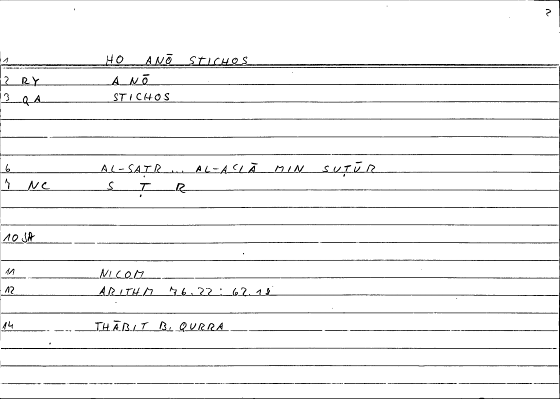 2
1 HO ANŌ STICHOS
2 RY ANŌ
3 QA STICHOS
6 AL-SAṬR ... AL-ACLĀ MIN SUṬŪR
7 NC S Ṭ R
10 JA
11 NICOM
12 ARITHM 76.22 : 62.18
14 THĀBIT B. QURRA